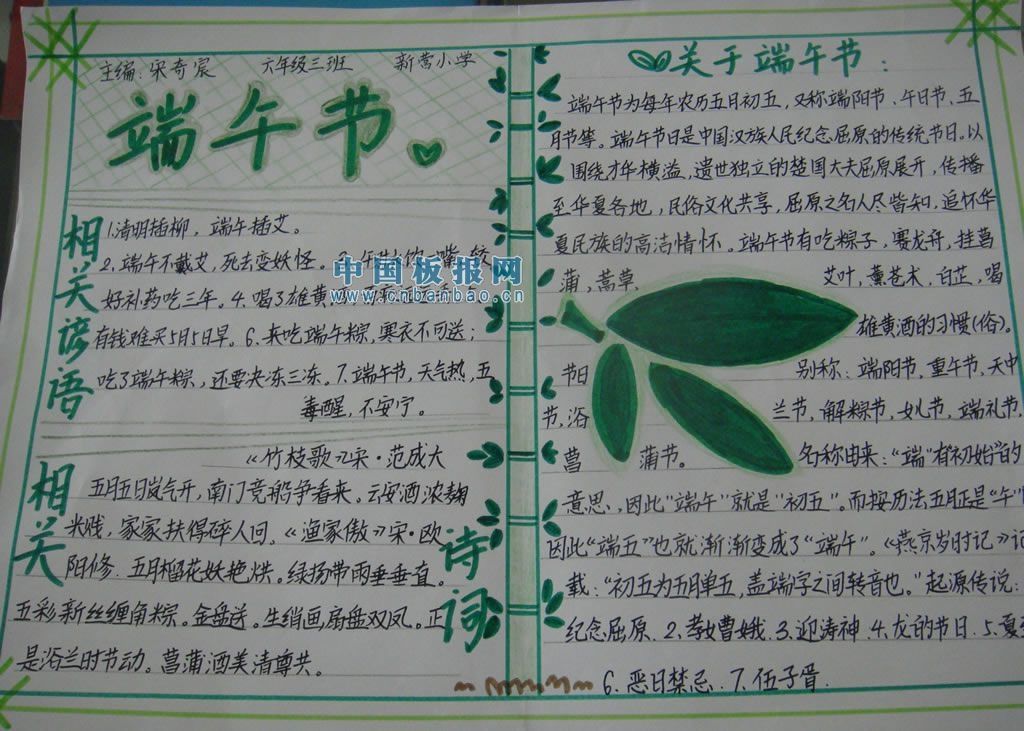 主编：宋奇宸 六年级三班 新营小学
端午节
相关谚语
1.清明插柳，端午插艾。
2.端午不戴艾，死去变妖怪。
好补药吃三年。4.喝了雄黄
有钱难买5月5日早。6.未吃端午粽，寒衣不可送；
吃了端午粽，还要冻三冻。7.端午节，天气热，五
毒醒，不安宁。
中国板报网
www.cnbanbao.cn
相关
诗词
《竹枝歌》宋·范成大
五月五日岚气开，南门竞船争看来。云安酒浓麹
米贱，家家扶得碎人回。《渔家傲》宋·欧
阳修.五月榴花妖艳烘。绿扬带雨垂垂直。
五彩新丝缠角粽。金盘送。生绡画扇盘双凤。正
是浴兰时节动。菖蒲酒美清尊共。
关于端午节：
端午节为每年农历五月初五，又称端阳节、午日节、五
月节等。端午节日是中国汉族人民纪念屈原的传统节日。以
围绕才华横溢，遗世独立的楚国大夫屈原展开，传播
至华夏各地，民俗文化共享，屈原之名人尽皆知，追怀华
夏民族的高洁情怀。端午节有吃粽子，赛龙舟，挂菖
蒲，蒿草， 艾叶，薰苍术，白芷，喝
雄黄酒的习惯(俗)。
节日 别称：端阳节，重午节，天中
节，浴 兰节，解粽节，女儿节，端礼节，
菖 蒲节。 名称由来：“端”有初始的
意思，因此“端午”就是“初五”。而按历法五月正是“午”
因此“端五”也就渐渐变成了“端午”。《燕京岁时记》记
载：“初五为五月单五，盖端字之间转音也。”起源传说：
纪念屈原.2.孝女曹娥.3.迎涛神.4.龙的节日.5.夏至
6.恶日禁忌.7.伍子胥.